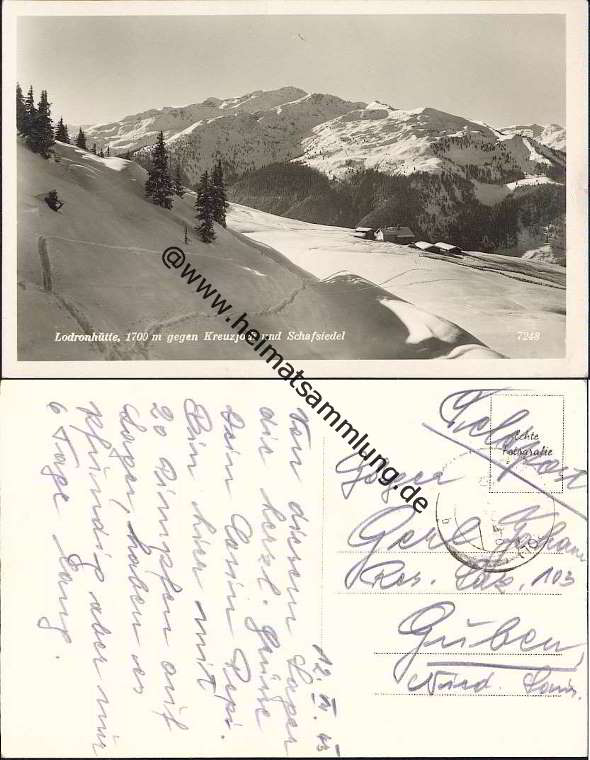 Lodronhütte, 1700 m gegen Kreuzjoch und Schafsiedel
7248
@www.heimatsammlung.de
Feldpost
Echte
Fotografie
Johann
Res. Laz. 103
Guben
Nied.
12. 43
Von diesem Lager
die herzl. Grüße
Dein Cousin Pepi.
Bin hier mit
20 auf
Lager, haben es
pfundig aber nur
6 Tage lang.